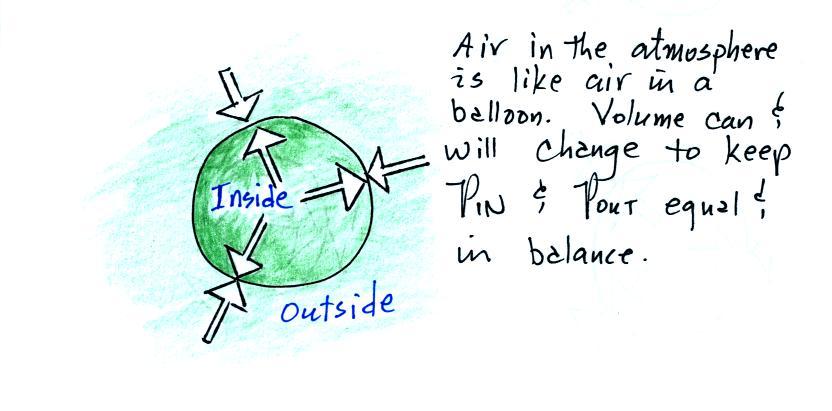 Air in the atmosphere
is like air in a
balloon. Volume can &
will change to keep
PIN & POUT equal &
in balance.
Inside
Outside